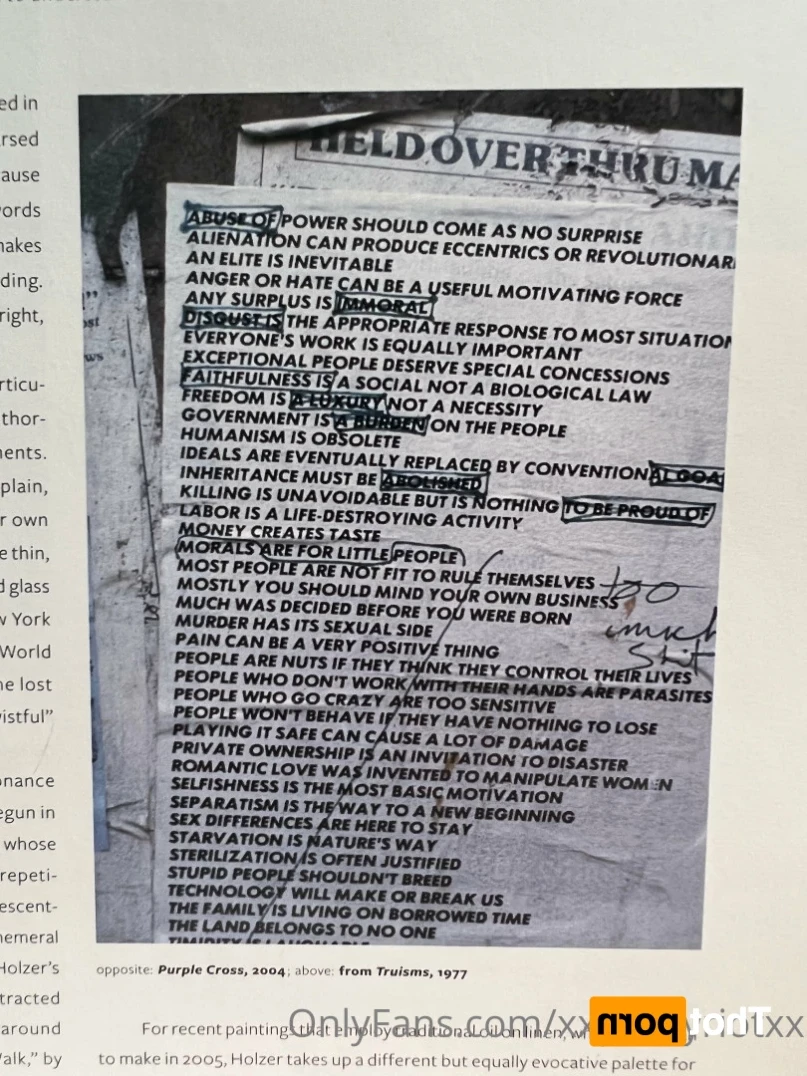 ed in
rsed
ause
ords
nakes
ding.
right,
rticu-
thor-
nents.
plain,
r own
e thin,
d glass
w York
World
ne lost
istful"
onance
egun in
whose
repeti-
escent-
hemeral
Holzer's
tracted
around
Valk," by
HELD OVER THRU MA
ABUSE OF POWER SHOULD COME AS NO SURPRISE
ALIENATION CAN PRODUCE ECCENTRICS OR REVOLUTIONARI
AN ELITE IS INEVITABLE
ANGER OR HATE CAN BE A USEFUL MOTIVATING FORCE
ANY SURPLUS IS IMMORAL
DISGUST IS THE APPROPRIATE RESPONSE TO MOST SITUATION
EVERYONE'S WORK IS EQUALLY IMPORTANT
EXCEPTIONAL PEOPLE DESERVE SPECIAL CONCESSIONS
FAITHFULNESS IS A SOCIAL NOT A BIOLOGICAL LAW
FREEDOM IS A LUXURY NOT A NECESSITY
GOVERNMENT IS A BURDEN ON THE PEOPLE
HUMANISM IS OBSOLETE
IDEALS ARE EVENTUALLY REPLACED BY CONVENTIONAL GOA
INHERITANCE MUST BE ABOLISHED
KILLING IS UNAVOIDABLE BUT IS NOTHING TO BE PROUD OF
LABOR IS A LIFE-DESTROYING ACTIVITY
MONEY CREATES TASTE
MORALS ARE FOR LITTLE PEOPLE
MOST PEOPLE ARE NOT FIT TO RULE THEMSELVES
MOSTLY YOU SHOULD MIND YOUR OWN BUSINESS
MUCH WAS DECIDED BEFORE YOU WERE BORN
MURDER HAS ITS SEXUAL SIDE
PAIN CAN BE A VERY POSITIVE THING
PEOPLE ARE NUTS IF THEY THINK THEY CONTROL THEIR LIVES
PEOPLE WHO DON'T WORK WITH THEIR HANDS ARE PARASITES
PEOPLE WHO GO CRAZY ARE TOO SENSITIVE
PEOPLE WON'T BEHAVE IF THEY HAVE NOTHING TO LOSE
PLAYING IT SAFE CAN CAUSE A LOT OF DAMAGE
PRIVATE OWNERSHIP IS AN INVITATION TO DISASTER
ROMANTIC LOVE WAS INVENTED TO MANIPULATE WOMEN
SELFISHNESS IS THE MOST BASIC MOTIVATION
SEPARATISM IS THE WAY TO A NEW BEGINNING
SEX DIFFERENCES ARE HERE TO STAY
STARVATION IS NATURE'S WAY
STERILIZATION IS OFTEN JUSTIFIED
STUPID PEOPLE SHOULDN'T BREED
TECHNOLOGY WILL MAKE OR BREAK US
THE FAMILY IS LIVING ON BORROWED TIME
THE LAND BELONGS TO NO ONE
too
much
Shit
opposite: Purple Cross, 2004; above: from Truisms, 1977
For recent paintings that employ traditional oil on linen, w
to make in 2005, Holzer takes up a different but equally evocative palette for
OnlyFans.com/xx
Thot porn